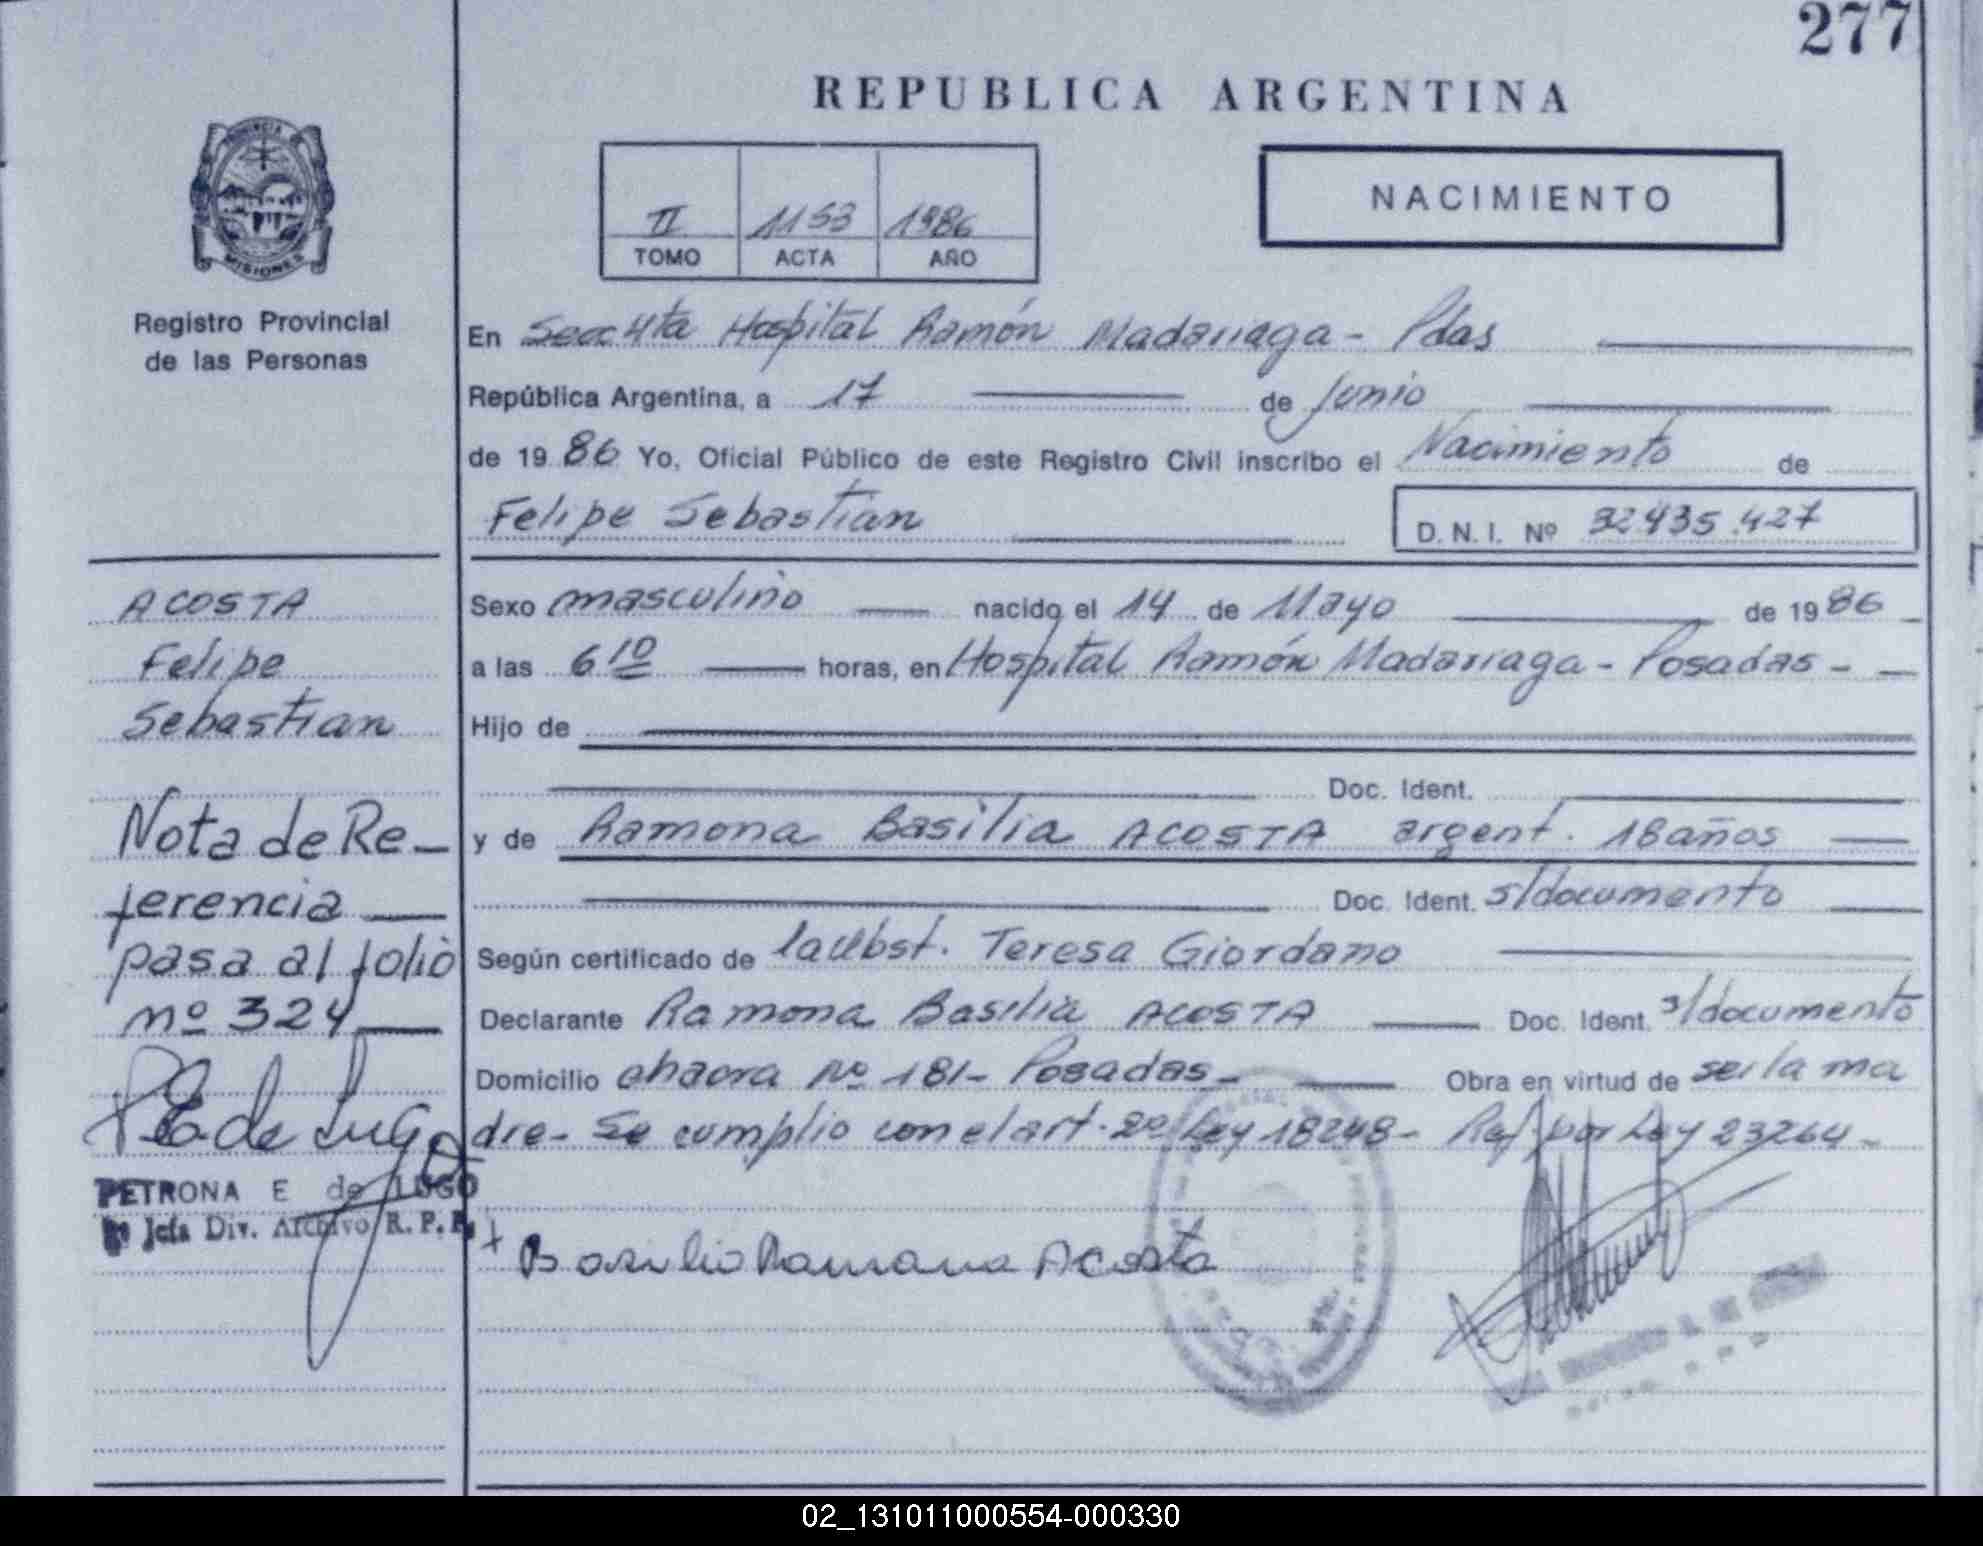 277
REPUBLICA ARGENTINA
NACIMIENTO
II 1153 1986
TOMO ACTA AÑO
PROVINCIA
MISIONES
Registro Provincial
de las Personas
En Secc 4ta Hospital Ramón Madariaga - Pdas
República Argentina, a 17 de Junio
de 19 86 Yo, Oficial Público de este Registro Civil inscribo el Nacimiento de
Felipe Sebastian D. N. I. Nº 32.435.427
ACOSTA
Felipe
Sebastian
Nota de Re-
ferencia
pasa al folio
nº 324
PETRONA E de LUGO
Jefa Div. Archivo R. P. P.
Sexo masculino nacido el 14 de Mayo de 19 86
a las 6 10 horas, en Hospital Ramón Madariaga - Posadas -
Hijo de
Doc. Ident.
y de Ramona Basilia ACOSTA argent. 18 años
Doc. Ident. s/documento
Según certificado de la Obst. Teresa Giordano
Declarante Ramona Basilia ACOSTA Doc. Ident. s/documento
Domicilio chacra Nº 181- Posadas- Obra en virtud de ser la ma
dre- Se cumplio con el art. 2º Ley 18248- Ref. por Ley 23264-
Ramona Acosta
02_131011000554-000330